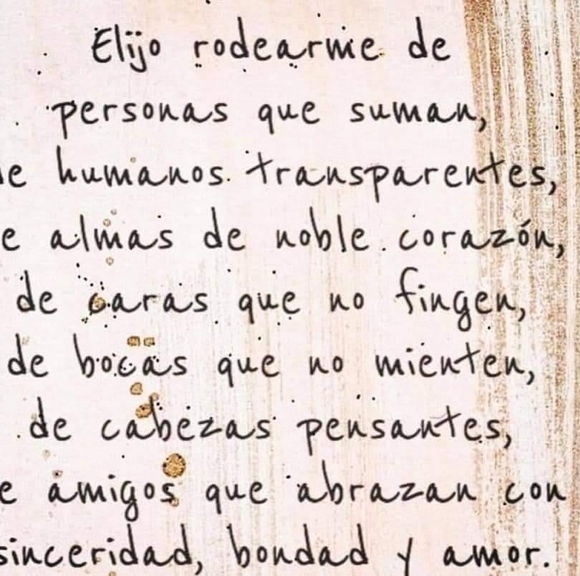 Elijo rodearme de
personas que suman,
e humanos transparentes,
e almas de noble corazón,
de caras que no fingen,
de bocas que no mienten,
de cabezas pensantes,
e amigos que abrazan con
sinceridad, bondad y amor.